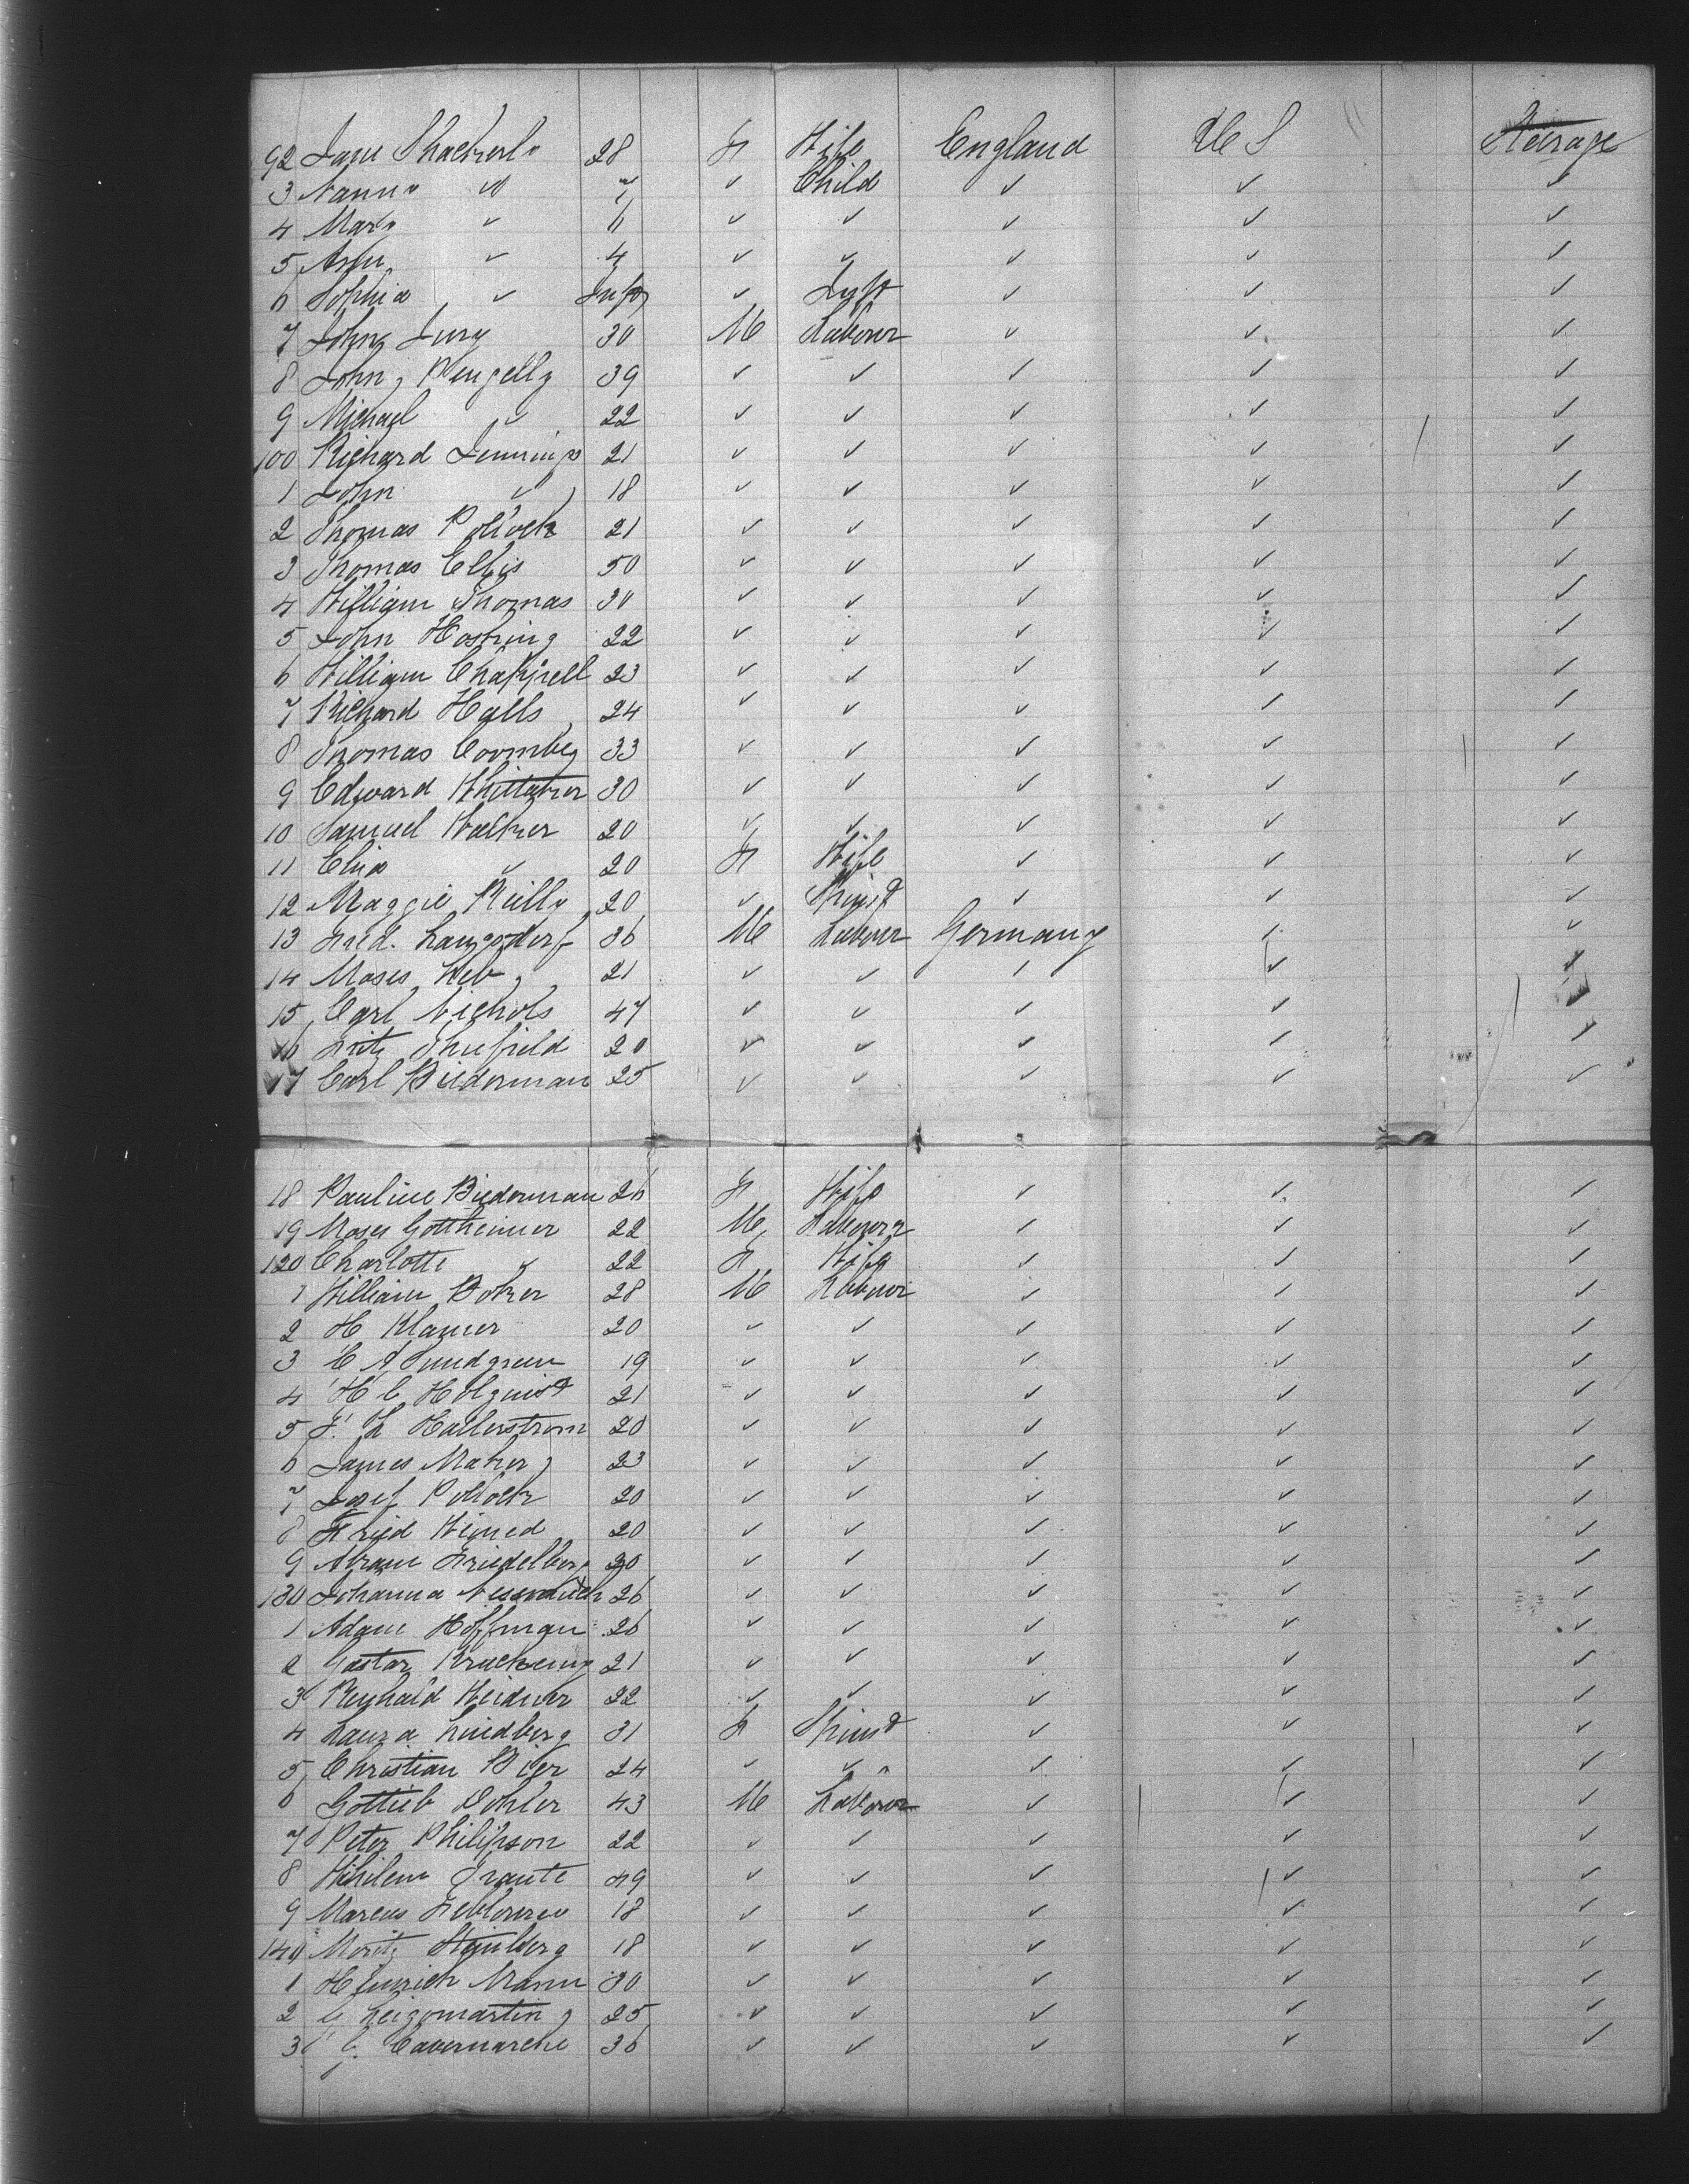 92 Jane Shackerly 28 F Wife England U S Steerage
3 Nanny " 7 ✓ Child ✓ ✓ ✓
4 Mary ✓ 6 ✓ ✓ ✓ ✓ ✓
5 Ann ✓ 4 ✓ ✓ ✓ ✓ ✓
6 Sophia ✓ Inft ✓ Inft ✓ ✓ ✓
7 John Jury 30 M Labour ✓ ✓ ✓
8 John Pengelly 39 ✓ ✓ ✓ ✓ ✓
9 Michael ✓ 22 ✓ ✓ ✓ ✓ ✓
100 Richard Jennings 21 ✓ ✓ ✓ ✓ ✓
1 John ✓ 18 ✓ ✓ ✓ ✓ ✓
2 Thomas Pollock 21 ✓ ✓ ✓ ✓ ✓
3 Thomas Ellis 50 ✓ ✓ ✓ ✓ ✓
4 William Thomas 30 ✓ ✓ ✓ ✓ ✓
5 John Hosking 22 ✓ ✓ ✓ ✓ ✓
6 William Chappell 23 ✓ ✓ ✓ ✓ ✓
7 Richard Halls 24 ✓ ✓ ✓ ✓ ✓
8 Thomas Coombes 33 ✓ ✓ ✓ ✓ ✓
9 Edward Whittaker 30 ✓ ✓ ✓ ✓ ✓
10 Samuel Walker 20 ✓ ✓ ✓ ✓ ✓
11 Eliza ✓ 20 F Wife ✓ ✓ ✓
12 Maggie Reilly 20 ✓ Spinst ✓ ✓ ✓
13 Fred. Langsdorf 36 M Labour Germany ✓ ✓
14 Moses 21 ✓ ✓ ✓ ✓ ✓
15 Carl Nichols 47 ✓ ✓ ✓ ✓ ✓
16 Fritz 20 ✓ ✓ ✓ ✓ ✓
17 Carl Biederman 25 ✓ ✓ ✓ ✓ ✓
18 Pauline Biederman 26 F Wife ✓ ✓ ✓
19 Moses Gottheimer 22 M Labourr ✓ ✓ ✓
120 Charlotte ✓ 22 F Wife ✓ ✓ ✓
1 William Boker 28 M Labour ✓ ✓ ✓
2 H Klamer 20 ✓ ✓ ✓ ✓ ✓
3 C A Sundgreen 19 ✓ ✓ ✓ ✓ ✓
4 H C Holquist 21 ✓ ✓ ✓ ✓ ✓
5 F. L Hallerstrom 20 ✓ ✓ ✓ ✓ ✓
6 James Maker 23 ✓ ✓ ✓ ✓ ✓
7 Josef Pollock 20 ✓ ✓ ✓ ✓ ✓
8 Fried 20 ✓ ✓ ✓ ✓ ✓
9 Abram Friedelberg 20 ✓ ✓ ✓ ✓ ✓
130 Johanna 26 ✓ ✓ ✓ ✓ ✓
1 Adam Hoffman 26 ✓ ✓ ✓ ✓ ✓
2 Gastar 21 ✓ ✓ ✓ ✓ ✓
3 Reynald Weidner 22 ✓ ✓ ✓ ✓ ✓
4 Laura Lindberg 31 F Spinst ✓ ✓ ✓
5 Christian Bier 24 ✓ ✓ ✓ ✓ ✓
6 Gottieb Dohler 43 M Labour ✓ ✓ ✓
7 Peter Philipson 22 ✓ ✓ ✓ ✓ ✓
8 Whilem Traute 49 ✓ ✓ ✓ ✓ ✓
9 Marcus 18 ✓ ✓ ✓ ✓ ✓
140 Moritz Steinberg 18 ✓ ✓ ✓ ✓ ✓
1 Heinrich Mann 30 ✓ ✓ ✓ ✓ ✓
2 G 25 ✓ ✓ ✓ ✓ ✓
3 C. 36 ✓ ✓ ✓ ✓ ✓